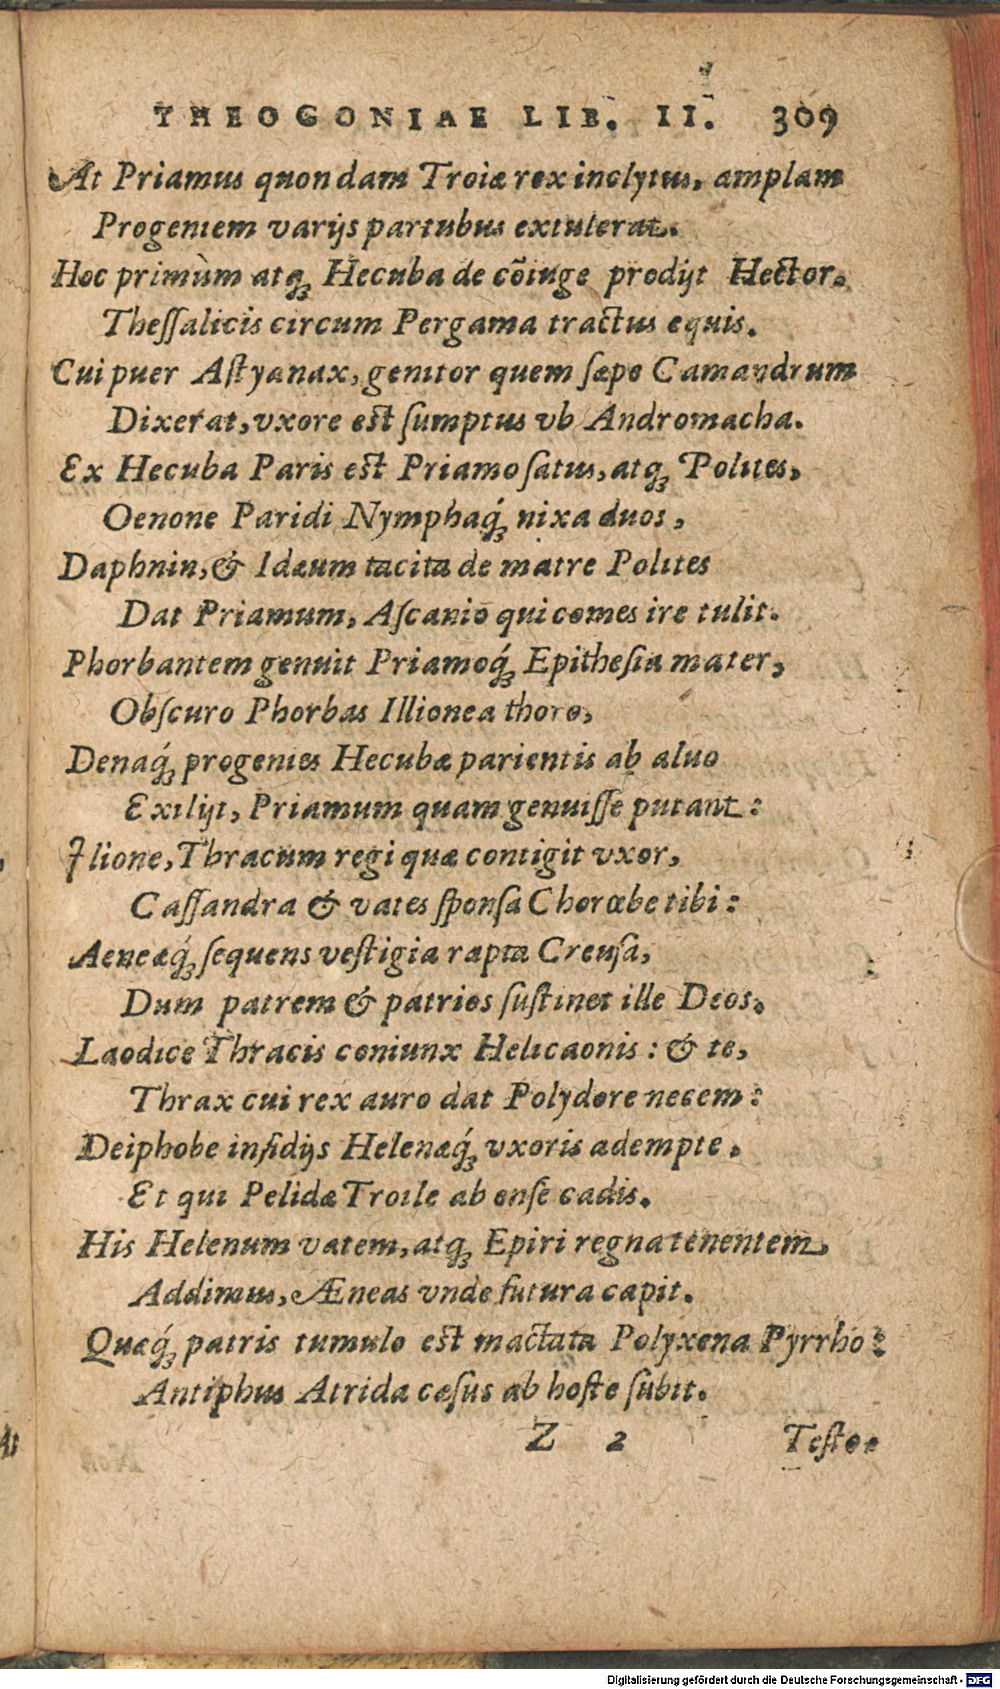 THEOGONIAE LIB. II. 309
At Priamus quondam Troiæ rex inclytus, amplam
Progeniem varijs partubus extulerat.
Hoc primùm atq́ꝫ Hecuba de cõiuge prodijt Hector.
Theſſalicis circum Pergama tractus equis.
Cui puer Aſtyanax, genitor quem ſæpe Camandrum
Dixerat, vxore est ſumptus vb Andromacha.
Ex Hecuba Paris est Priamo ſatus, atqꝫ Polites,
Oenone Paridi Nymphaq́ꝫ nixa duos,
Daphnin, & Idæum tacita de matre Polites
Dat Priamum, Aſcanio qui comes ire tulit.
Phorbantem genuit Priamoq́ꝫ Epitheſia mater,
Obſcuro Phorbas Illionea thoro,
Denaq́ꝫ progenies Hecubæ parientis ab aluo
Exilijt, Priamum quam genuiſſe putant:
Ilione, Thracum regi quæ contigit vxor,
Caſſandra & vates ſponſa Chorœbe tibi:
Aeneæq́ꝫ ſequens veſtigia rapta Creuſa,
Dum patrem & patrios ſuſtinet ille Deos.
Laodice Thracis coniunx Helicaonis: & te,
Thrax cui rex auro dat Polydore necem:
Deiphobe inſidijs Helenæq́ꝫ vxoris adempte.
Et qui Pelidæ Troile ab enſe cadis.
His Helenum vatem, atqꝫ Epiri regna tenentem,
Addimus, Æneas vnde futura capit.
Quæq́ꝫ patris tumulo est mactata Polyxena Pyrrho:
Antiphus Atrida cæſus ab hoſte ſubit.
Z 2 Teſto-
At
Digitalisierung gefördert durch die Deutsche Forschungsgemeinschaft - DFG